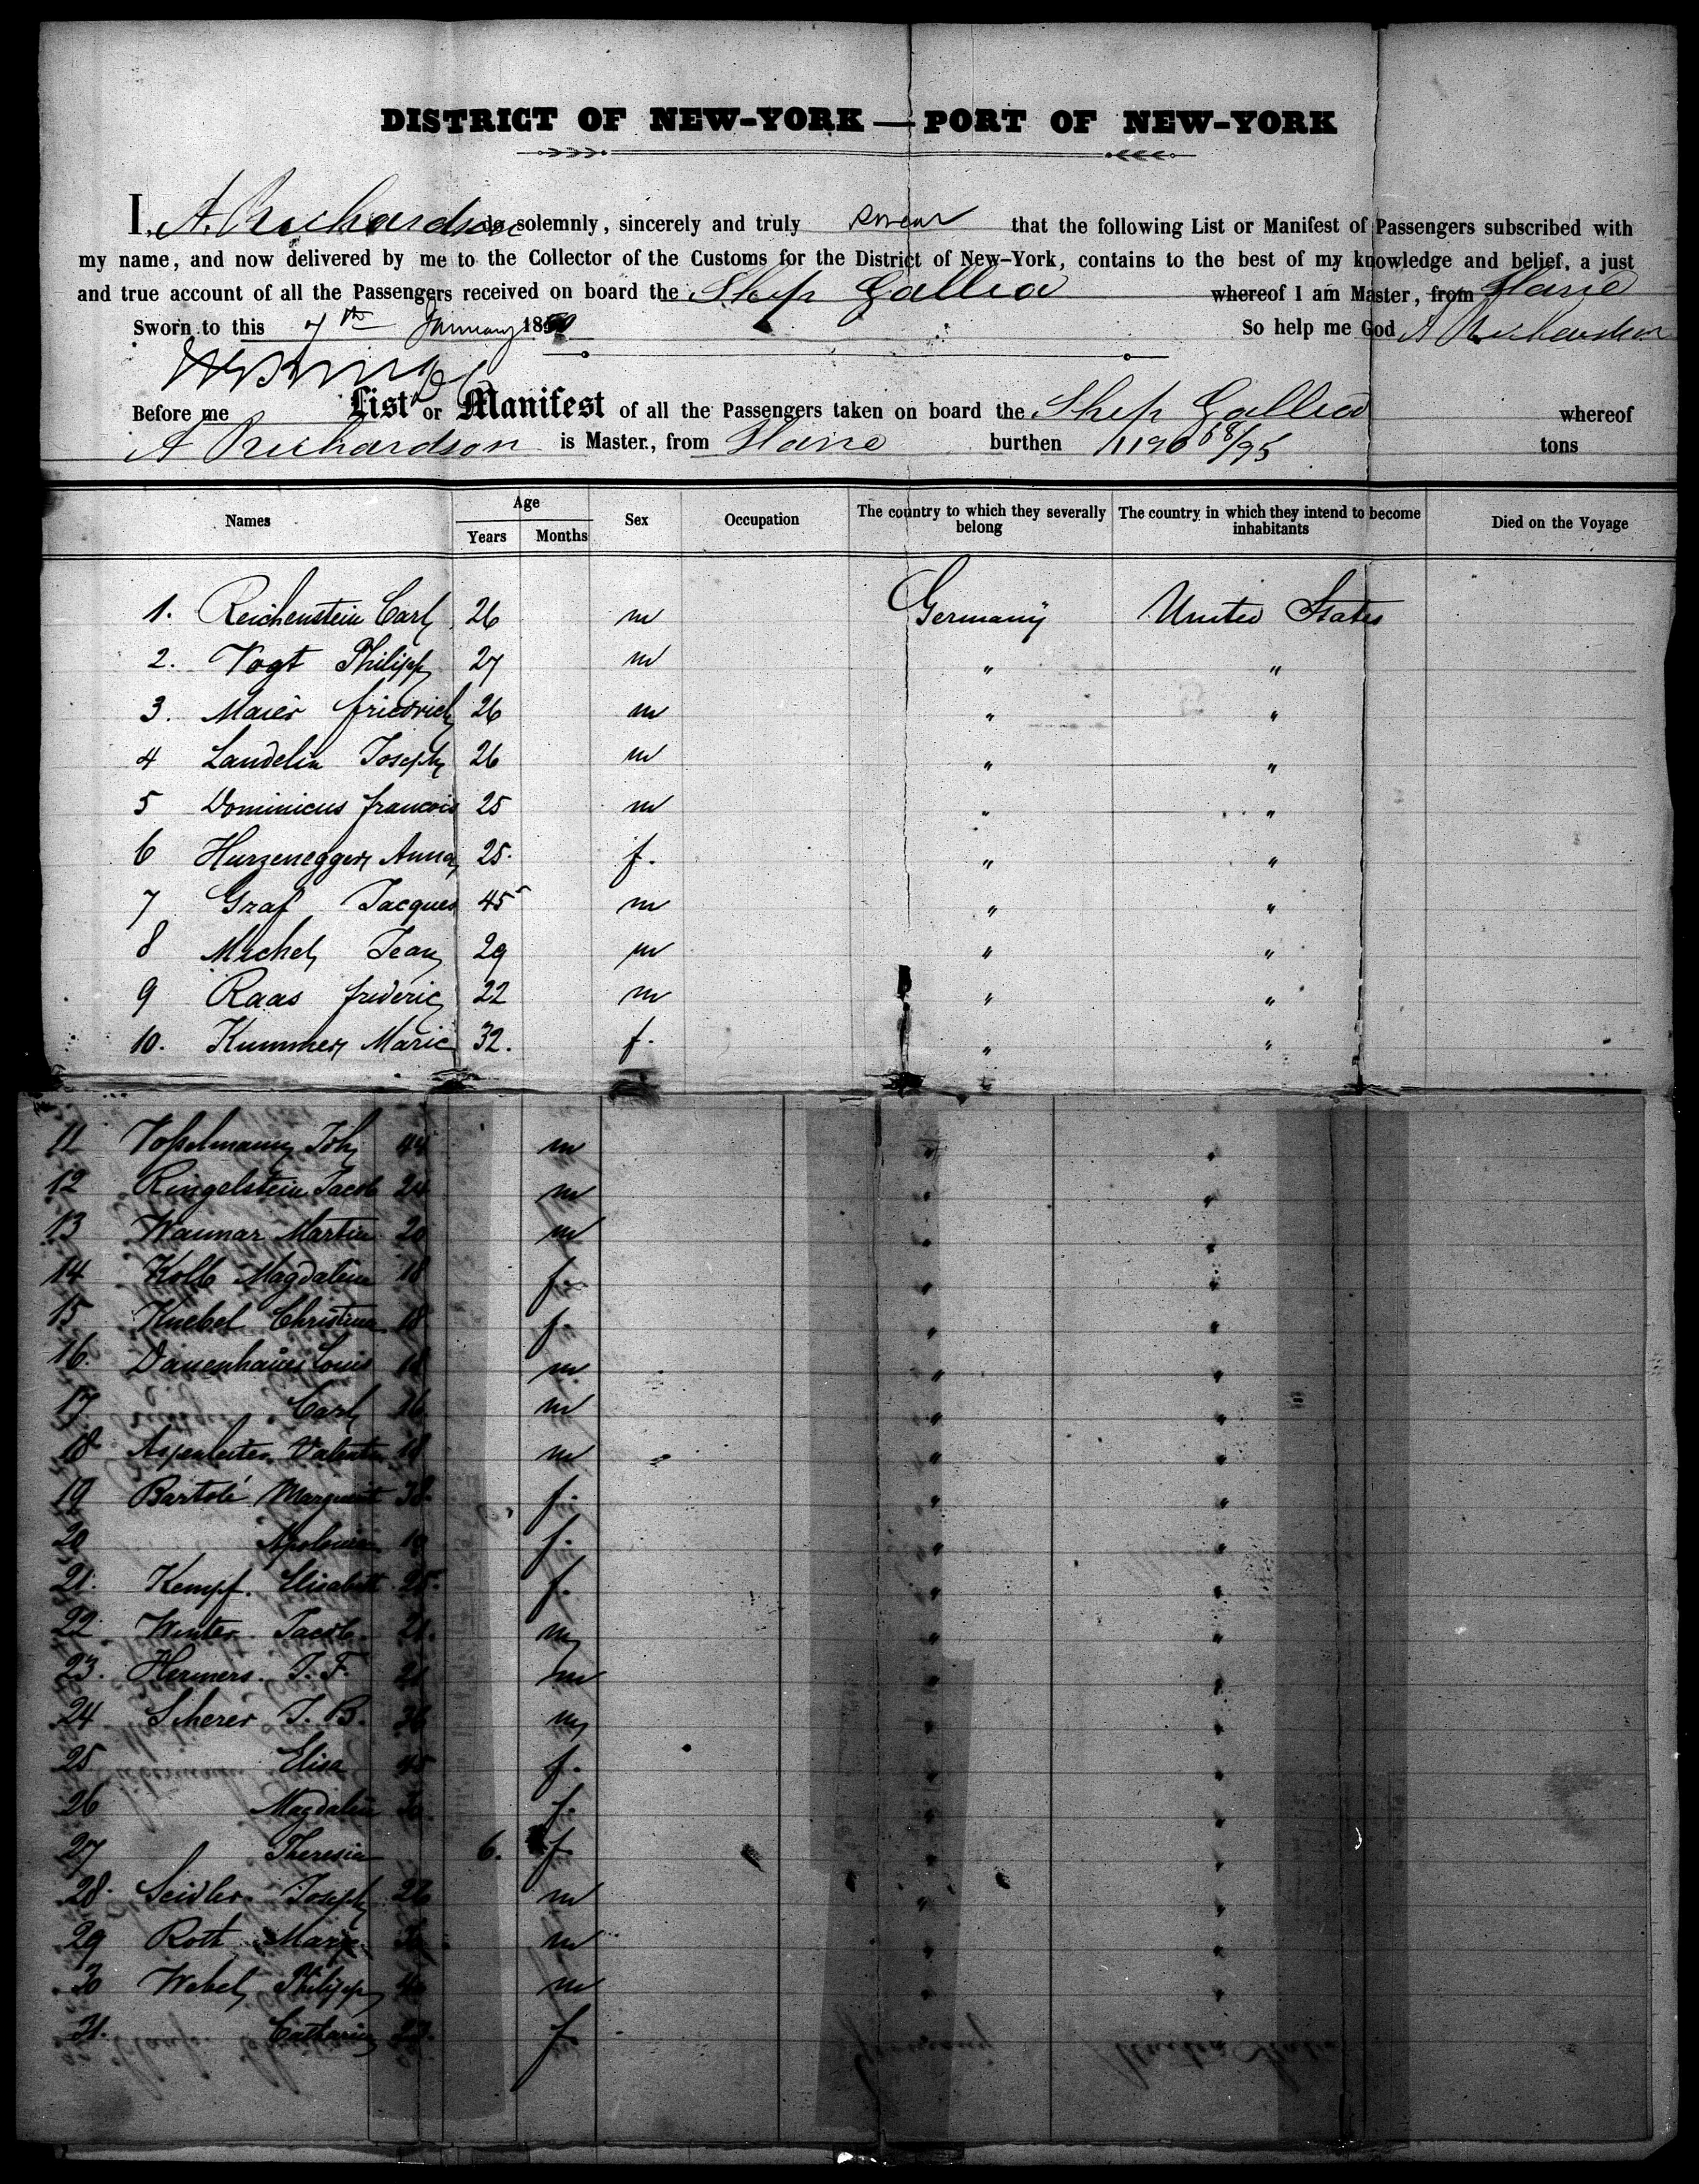 DISTRICT OF NEW-YORK — PORT OF NEW-YORK
I, A. Richardson do solemnly, sincerely and truly swear that the following List or Manifest of Passengers subscribed with
my name, and now delivered by me to the Collector of the Customs for the District of New-York, contains to the best of my knowledge and belief, a just
and true account of all the Passengers received on board the Ship Gallia whereof I am Master, from Havre
Sworn to this 7th January 18 So help me God A Richardson
Before me List or Manifest of all the Passengers taken on board the Ship Gallia whereof
A Richardson is Master, from Havre burthen 1190 68/95 tons
Names Age Years Months Sex Occupation The country to which they severally belong The country in which they intend to become inhabitants Died on the Voyage
1. Reichenstein Carl 26 m Germany United States
2. Vogt Philipp 27 m " "
3. Maier friedrich 26 m " "
4 Landelin Joseph 26 m " "
5 Dominicus francois 25 m " "
6 Hurzenegger Anna 25. f. " "
7 Graf Jacques 45 m " "
8 Michel Jean 29 m " "
9 Raas frederic 22 m " "
10. Kummer Marie 32. f. " "
11 Joh 44 m " "
12 Ringelstein Jacob 24 m " "
13 Wannar Martin 20 m " "
14 Kolb Magdalena 18 f. " "
15 Knebel Christina 18 f. " "
16. Dauenhauer Louis 18 m. " "
17 Carl 16 m " "
18 Valentin 18 m " "
19 Bartolé 38. f. " "
20 Apolonia 19 f. " "
21. Kempf. Elisabeth 25. f. " "
22. Winter Jacob 21. m " "
23. Hermers. J. F. 21 m " "
24 Scherer J. B. 36 m " "
25 Elisa 45 f. " "
26 Magdalena f. " "
27 Theresia 6. f " "
28. Seidler Joseph 26 m " "
29 Roth m " "
30 Webel Philipp m " "
31. Catharina f. " "